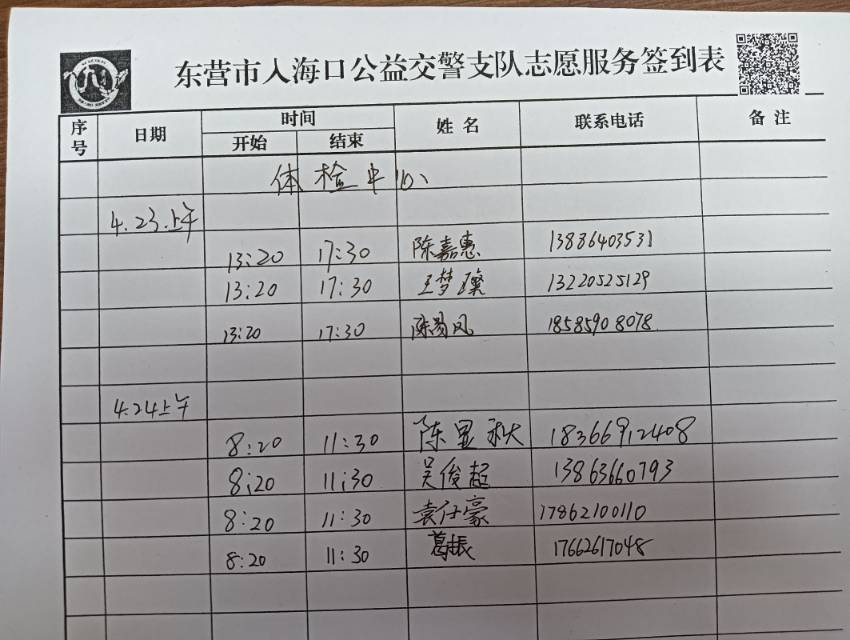 东营市入海口公益交警支队志愿服务签到表
序号 日期 时间 姓名 联系电话 备注
开始 结束
体检中心
4.23.上午
13:20 17:30 陈嘉惠 13836403531
13:20 17:30 王梦璨 13220525129
13:20 17:30 陈 风 18585908078
4.24上午
8:20 11:30 陈显秋 18366912408
8:20 11:30 吴俊超 13863660793
8:20 11:30 袁仕豪 17862100110
8:20 11:30 葛振 17662617048